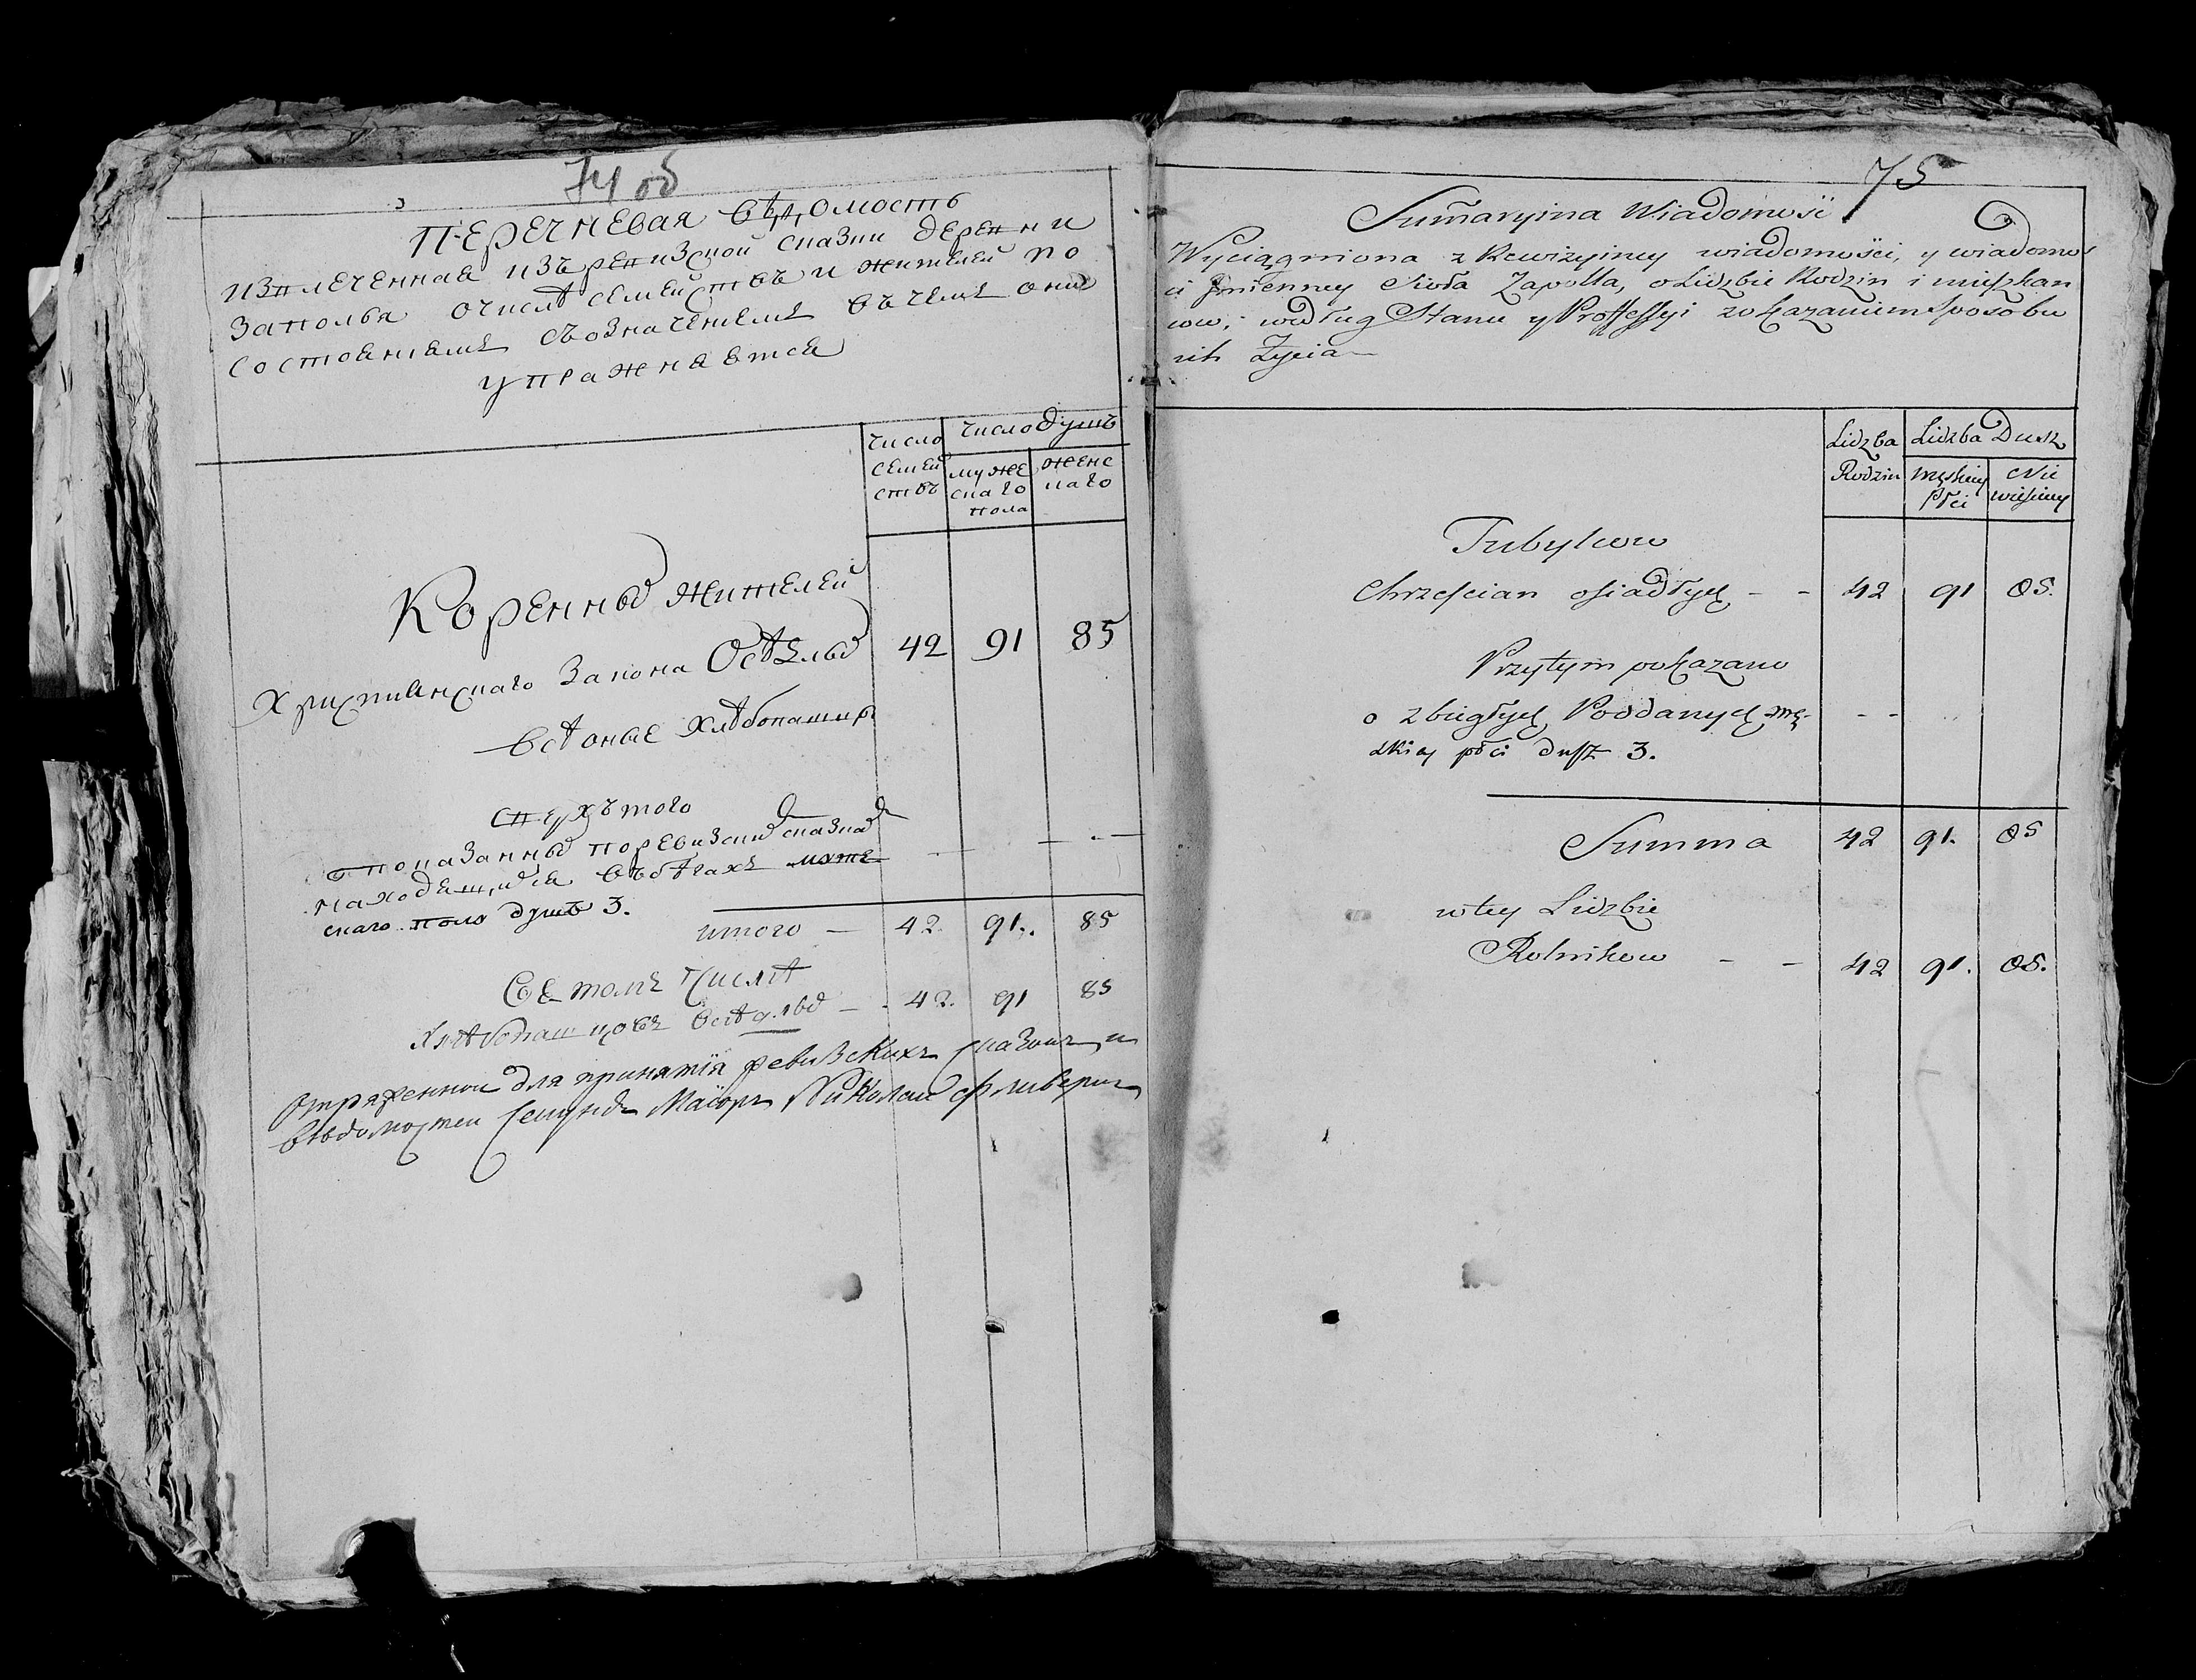 74 об
Перечневая вѣдомость
извлеченная изъ ревизской сказки деревни
Заполья о числѣ семействъ и жителей по
состояніямъ съ означеніемъ въ чемъ они
упражняются
число
семей
ствъ
число душъ
муже
скаго
пола
женс
каго
Коренныхъ жителей
Христианскаго закона осѣдлыхъ 42 91 85
всѣ оные хлѣбопашцы
сверхъ того
показанныхъ по ревизскихъ сказкахъ
находящихся въ бѣгахъ муже
скаго пола душъ 3.
итого — 42. 91. 85
въ томъ числѣ
Хлѣбопашцовъ осѣдлыхъ — 42. 91 85
отряженнои для принятія ревизскихъ сказокъ и
вѣдомостеи секундъ Маіоръ Николаи
75
Sumaryina Wiadomość
Wyciągniona z Rewizyiney wiadomości, y wiadomo
ci Jmienney Sioła Zapolla, o Lidzbie Rodzin i mieszkan
cow, według Stanu y Professyi z okazaniem Sposobu
ich Zycia —
Lidzba
Rodzin
Lidzba Dusz
męskiey
płci
Nie
wiesciey
Tubylcow
Chrzescian osiadłych - - 42 91 85.
Przytym pokazano
o zbiegłych Poddanych mę- - -
zkiey płci dusz 3.
Summa 42 91. 85
w tey Lidzbie
Rolnikow - - 42 91. 85.